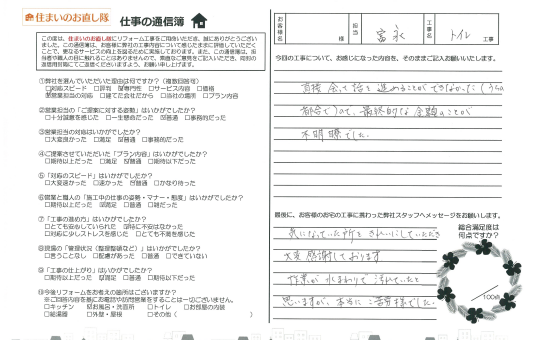 住まいのお直し隊
仕事の通信簿
この度は、住まいのお直し隊にリフォーム工事をご用命いただき、誠にありがとうござい
ました。このお客様は、お客様に弊社の工事内容について感じたままに評価していただく
ことで、更なるサービスの向上を図るために実施しております。また、この通信簿は、担
①弊社を選んでいただいた理由は何ですか？（複数回答可）
☑対応スピード □評判 □専門性 □サービス内容 □価格
☑営業担当の対応 □建てた会社だから □当社の場所 □プラン内容
②営業担当の「ご提案に対する姿勢」はいかがでしたか？
□十分誠意を感じた □一生懸命だった ☑普通 □事務的だった
③営業担当の対応はいかがでしたか？
□大変良かった □満足 ☑普通 □事務的だった
④ご提案させていただいた「プラン内容」はいかがでしたか？
□期待以上だった □満足 ☑普通 □期待以下だった
⑤「対応のスピード」はいかがでしたか？
□大変速かった □速かった ☑普通 □かなり待った
⑥営業と職人の「施工中の仕事の姿勢・マナー・態度」はいかがでしたか？
□期待以上だった ☑満足 □普通 □嫌だった
⑦「工事の進め方」はいかがでしたか？
□とても安心していられた ☑特に不安はなかった
□対応に少しストレスを感じた □とても不満を感じた
⑧現場の「管理状況（整理整頓など）」はいかがでしたか？
□言うことなし □配慮があった □普通 □できていない
⑨「工事の仕上がり」はいかがでしたか？
□期待以上だった ☑満足 □普通 □期待以下だった
⑩今後リフォームをお考えの箇所はございますか？
※ご回答内容を基にお電話や訪問営業をすることは一切ございません。
□キッチン ☑お風呂・洗面所 □トイレ □お部屋の内装
□給湯器 □外壁・屋根 □その他（ ）
お客様名
担当
富永
工事名
トイレ 工事
今回の工事について、お感じになった内容を、そのままご記入お願いいたします。
直接会って話を進めることができなかった（うちの
都合で）ので、最終的な金額のことが
不明瞭でした。
最後に、お客様のお宅の工事に携わった弊社スタッフへメッセージをお願いします。
気になっていた所をきれいにしていただき
大変感謝しております
作業が水まわりで汚れていたと
思いますが、本当にご苦労様でした。
総合満足度は
何点ですか？
／100点